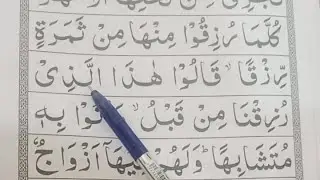 كُلَّمَا رُزِقُوْا مِنْهَا مِنْ ثَمَرَةٍ
رِّزْقًا ۙ قَالُوْا هٰذَا الَّذِىْ
رُزِقْنَا مِنْ قَبْلُ ۙ بِهٖ
مُتَشَابِهًا ؕ وَلَهُمْ فِيْهَآ اَزْوَاجٌ